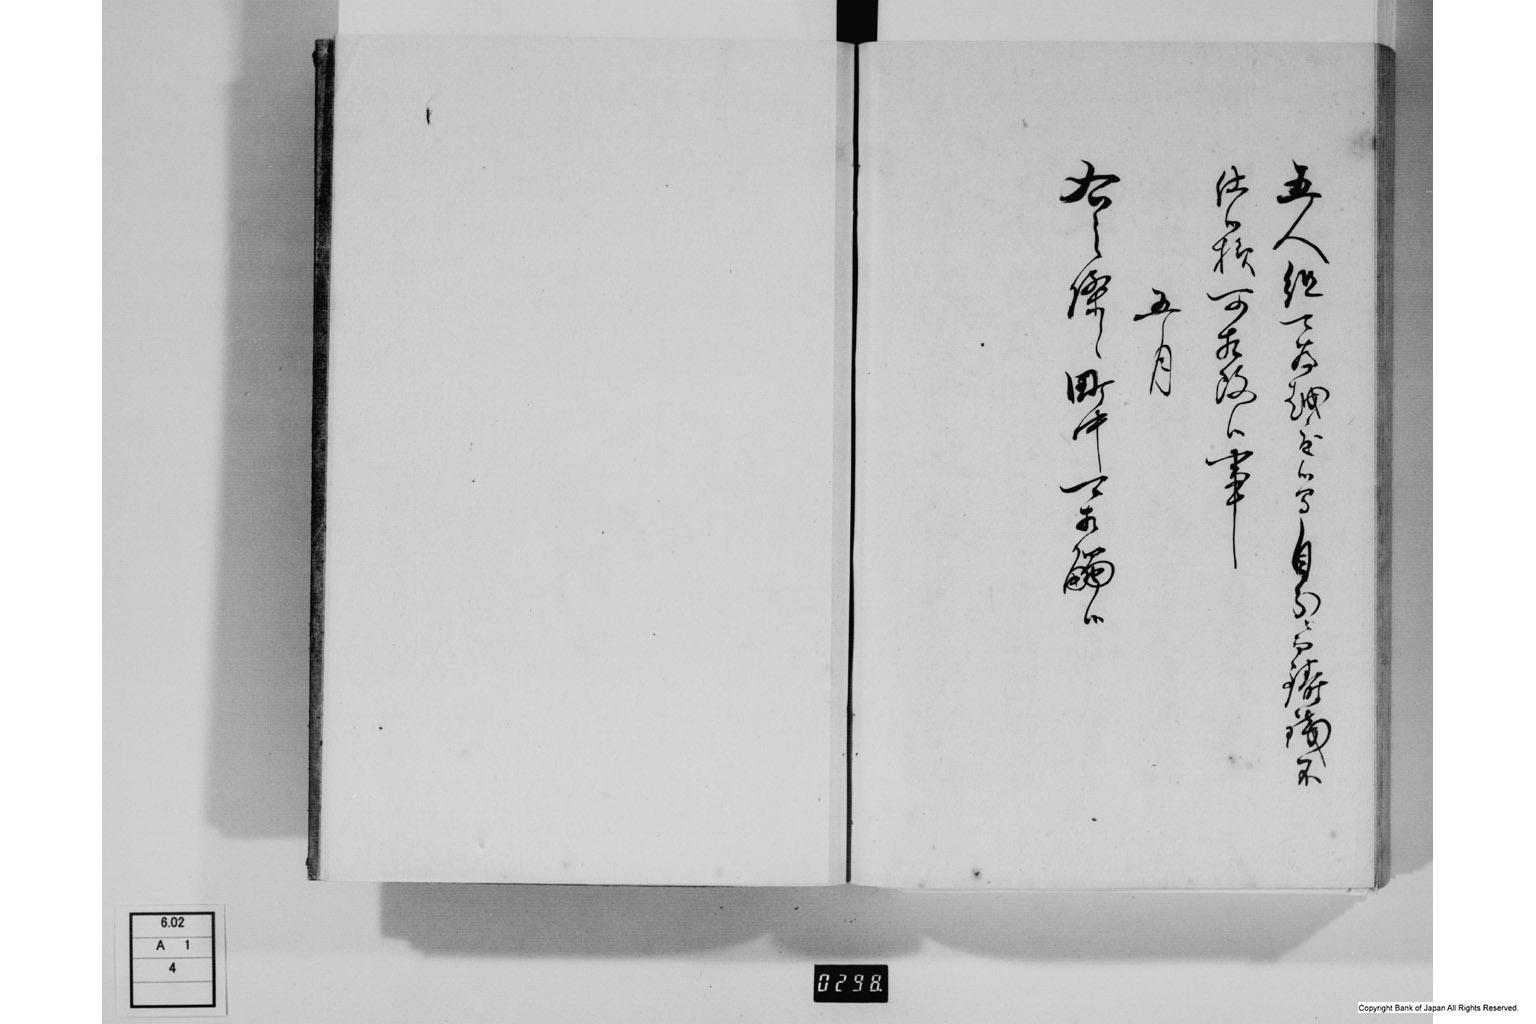 五人組可為越度候間自分ニ而鋳銭不
仕候様可相改候事
五月
右之條々町中可相觸候
6.02
A 1
4
0298.
Copyright Bank of Japan All Rights Reserved.